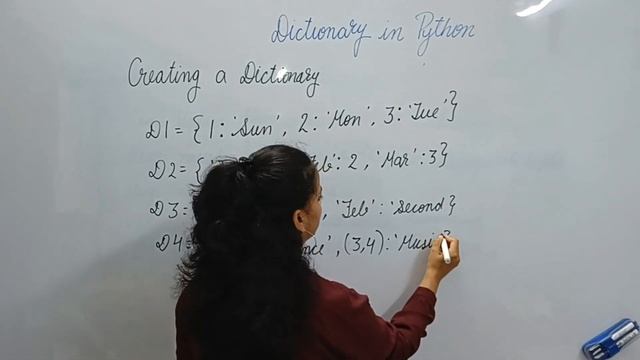 Dictionary in Python
Creating a Dictionary
D1 = { 1 : 'Sun', 2 : 'Mon', 3 : 'Tue' }
D2 = { : 2, 'Mar' : 3 }
D3 = , 'Feb' : 'Second' }
D4 = , (3,4) :